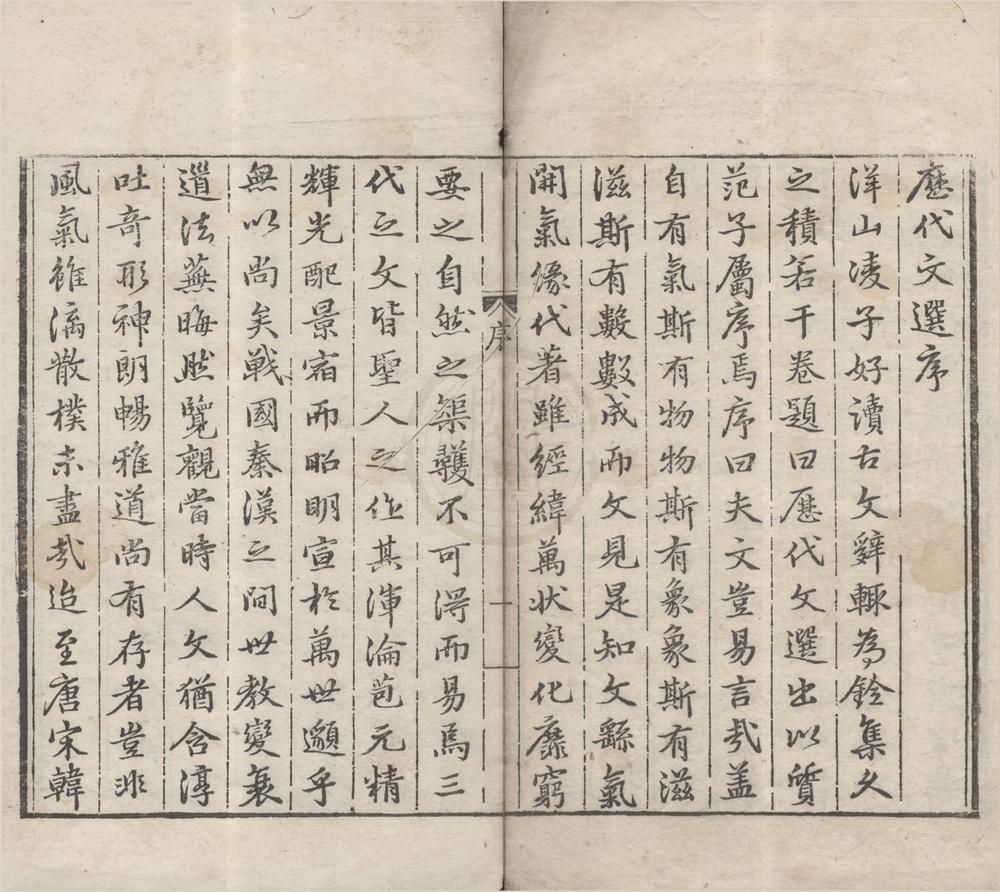 歷代文選序
洋山凌子好讀古文辭輒為銓集久
之積若干卷題曰歷代文選出以質
范子屬序焉序曰夫文豈易言哉盖
自有氣斯有物物斯有象象斯有滋
滋斯有數數成而文見是知文繇氣
開氣緣代著雖經緯萬狀變化靡窮
序
一
要之自然之榘矱不可得而易焉三
代之文皆聖人之作其渾淪苞元精
輝光配景宿而昭明宣於萬世邈乎
無以尚矣戰國秦漢之間世教變衰
道法蕪晦然覽觀當時人文猶含淳
吐奇形神朗暢雅道尚有存者豈非
風氣雖漓散樸未盡哉迨至唐宋韓